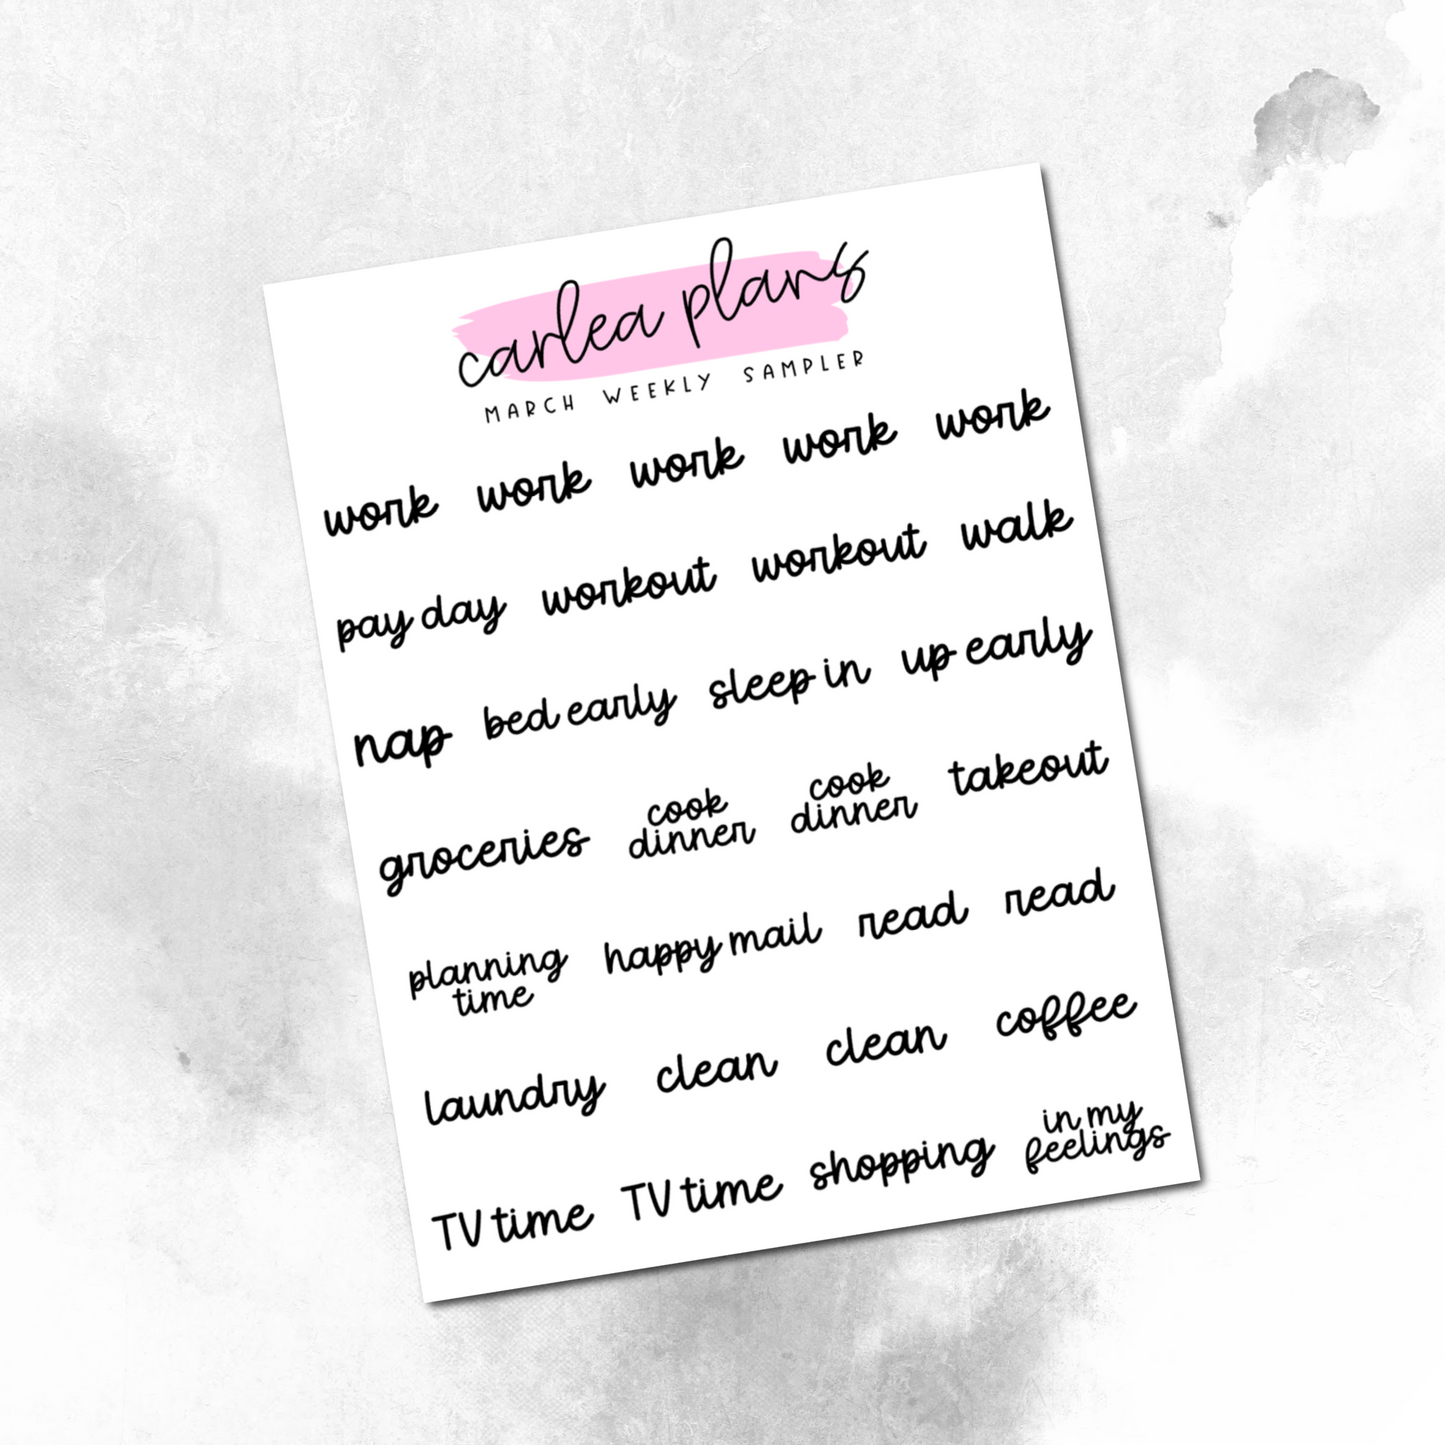 carlea plans
MARCH WEEKLY SAMPLER
work work work work work
pay day workout workout walk
nap bed early sleep in up early
groceries cook dinner cook dinner takeout
planning time happy mail read read
laundry clean clean coffee
TV time TV time shopping in my feelings